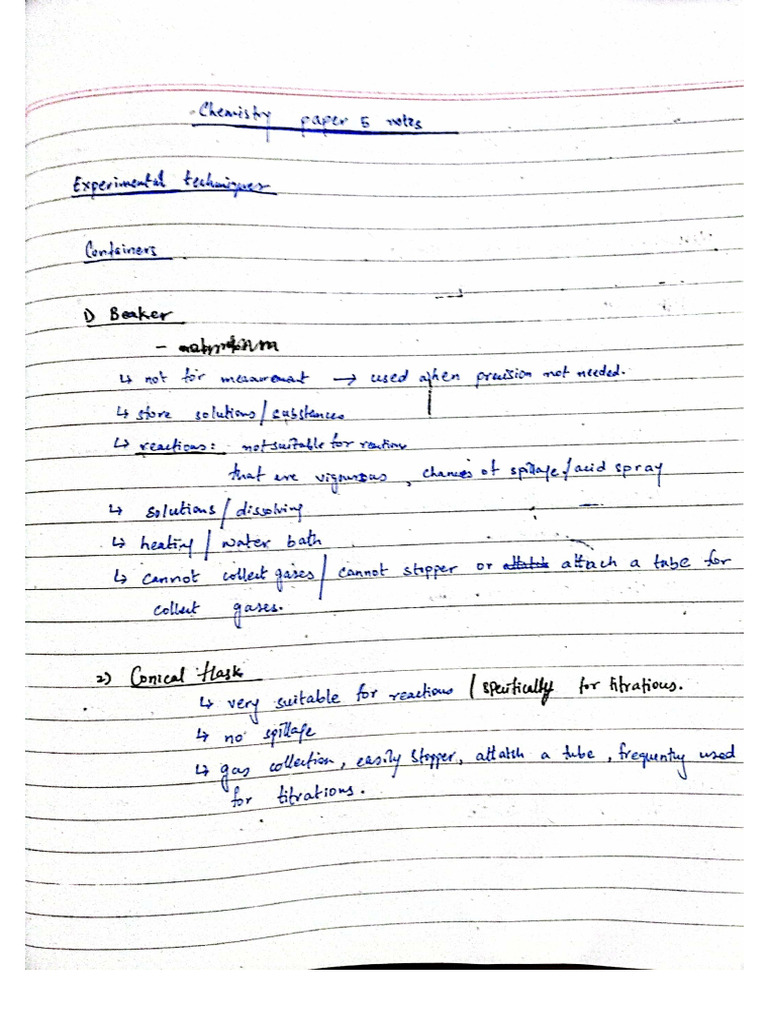 Chemistry paper 5 notes
Experimental techniques
Containers
1) Beaker
-
↳ not for measurement → used when precision not needed.
↳ store solutions/substances
↳ reactions: not suitable for reactions
that are vigourous, chances of spillage/acid spray
↳ solutions/dissolving
↳ heating/water bath
↳ cannot collect gases/cannot stopper or attach a tube for
collect gases.
2) Conical flask
↳ very suitable for reactions/specifically for titrations.
↳ no spillage
↳ gas collection, easily stopper, attatch a tube, frequently used
for titrations.